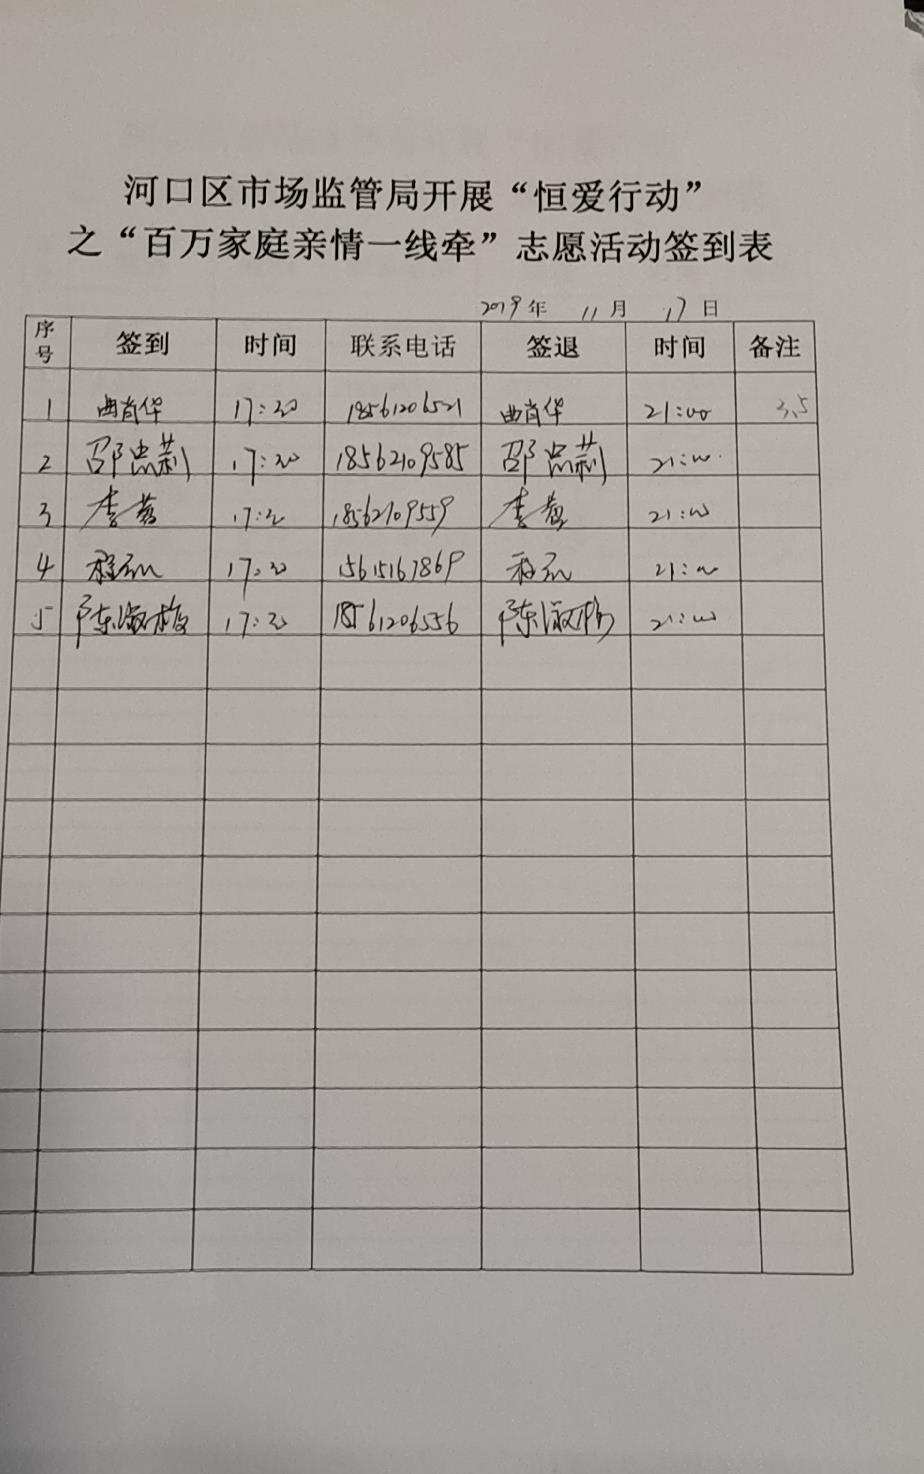 河口区市场监管局开展“恒爱行动”
之“百万家庭亲情一线牵”志愿活动签到表
2019年 11月 17日
序号 签到 时间 联系电话 签退 时间 备注
1 曲肖华 17:30 18561206521 曲肖华 21:00 3.5
2 邵忠莉 17:30 18562109585 邵忠莉 21:00
3 17:30 18562109559 21:00
4 17:30 15615167869 21:00
5 陈淑梅 17:30 18561206556 陈淑梅 21:00